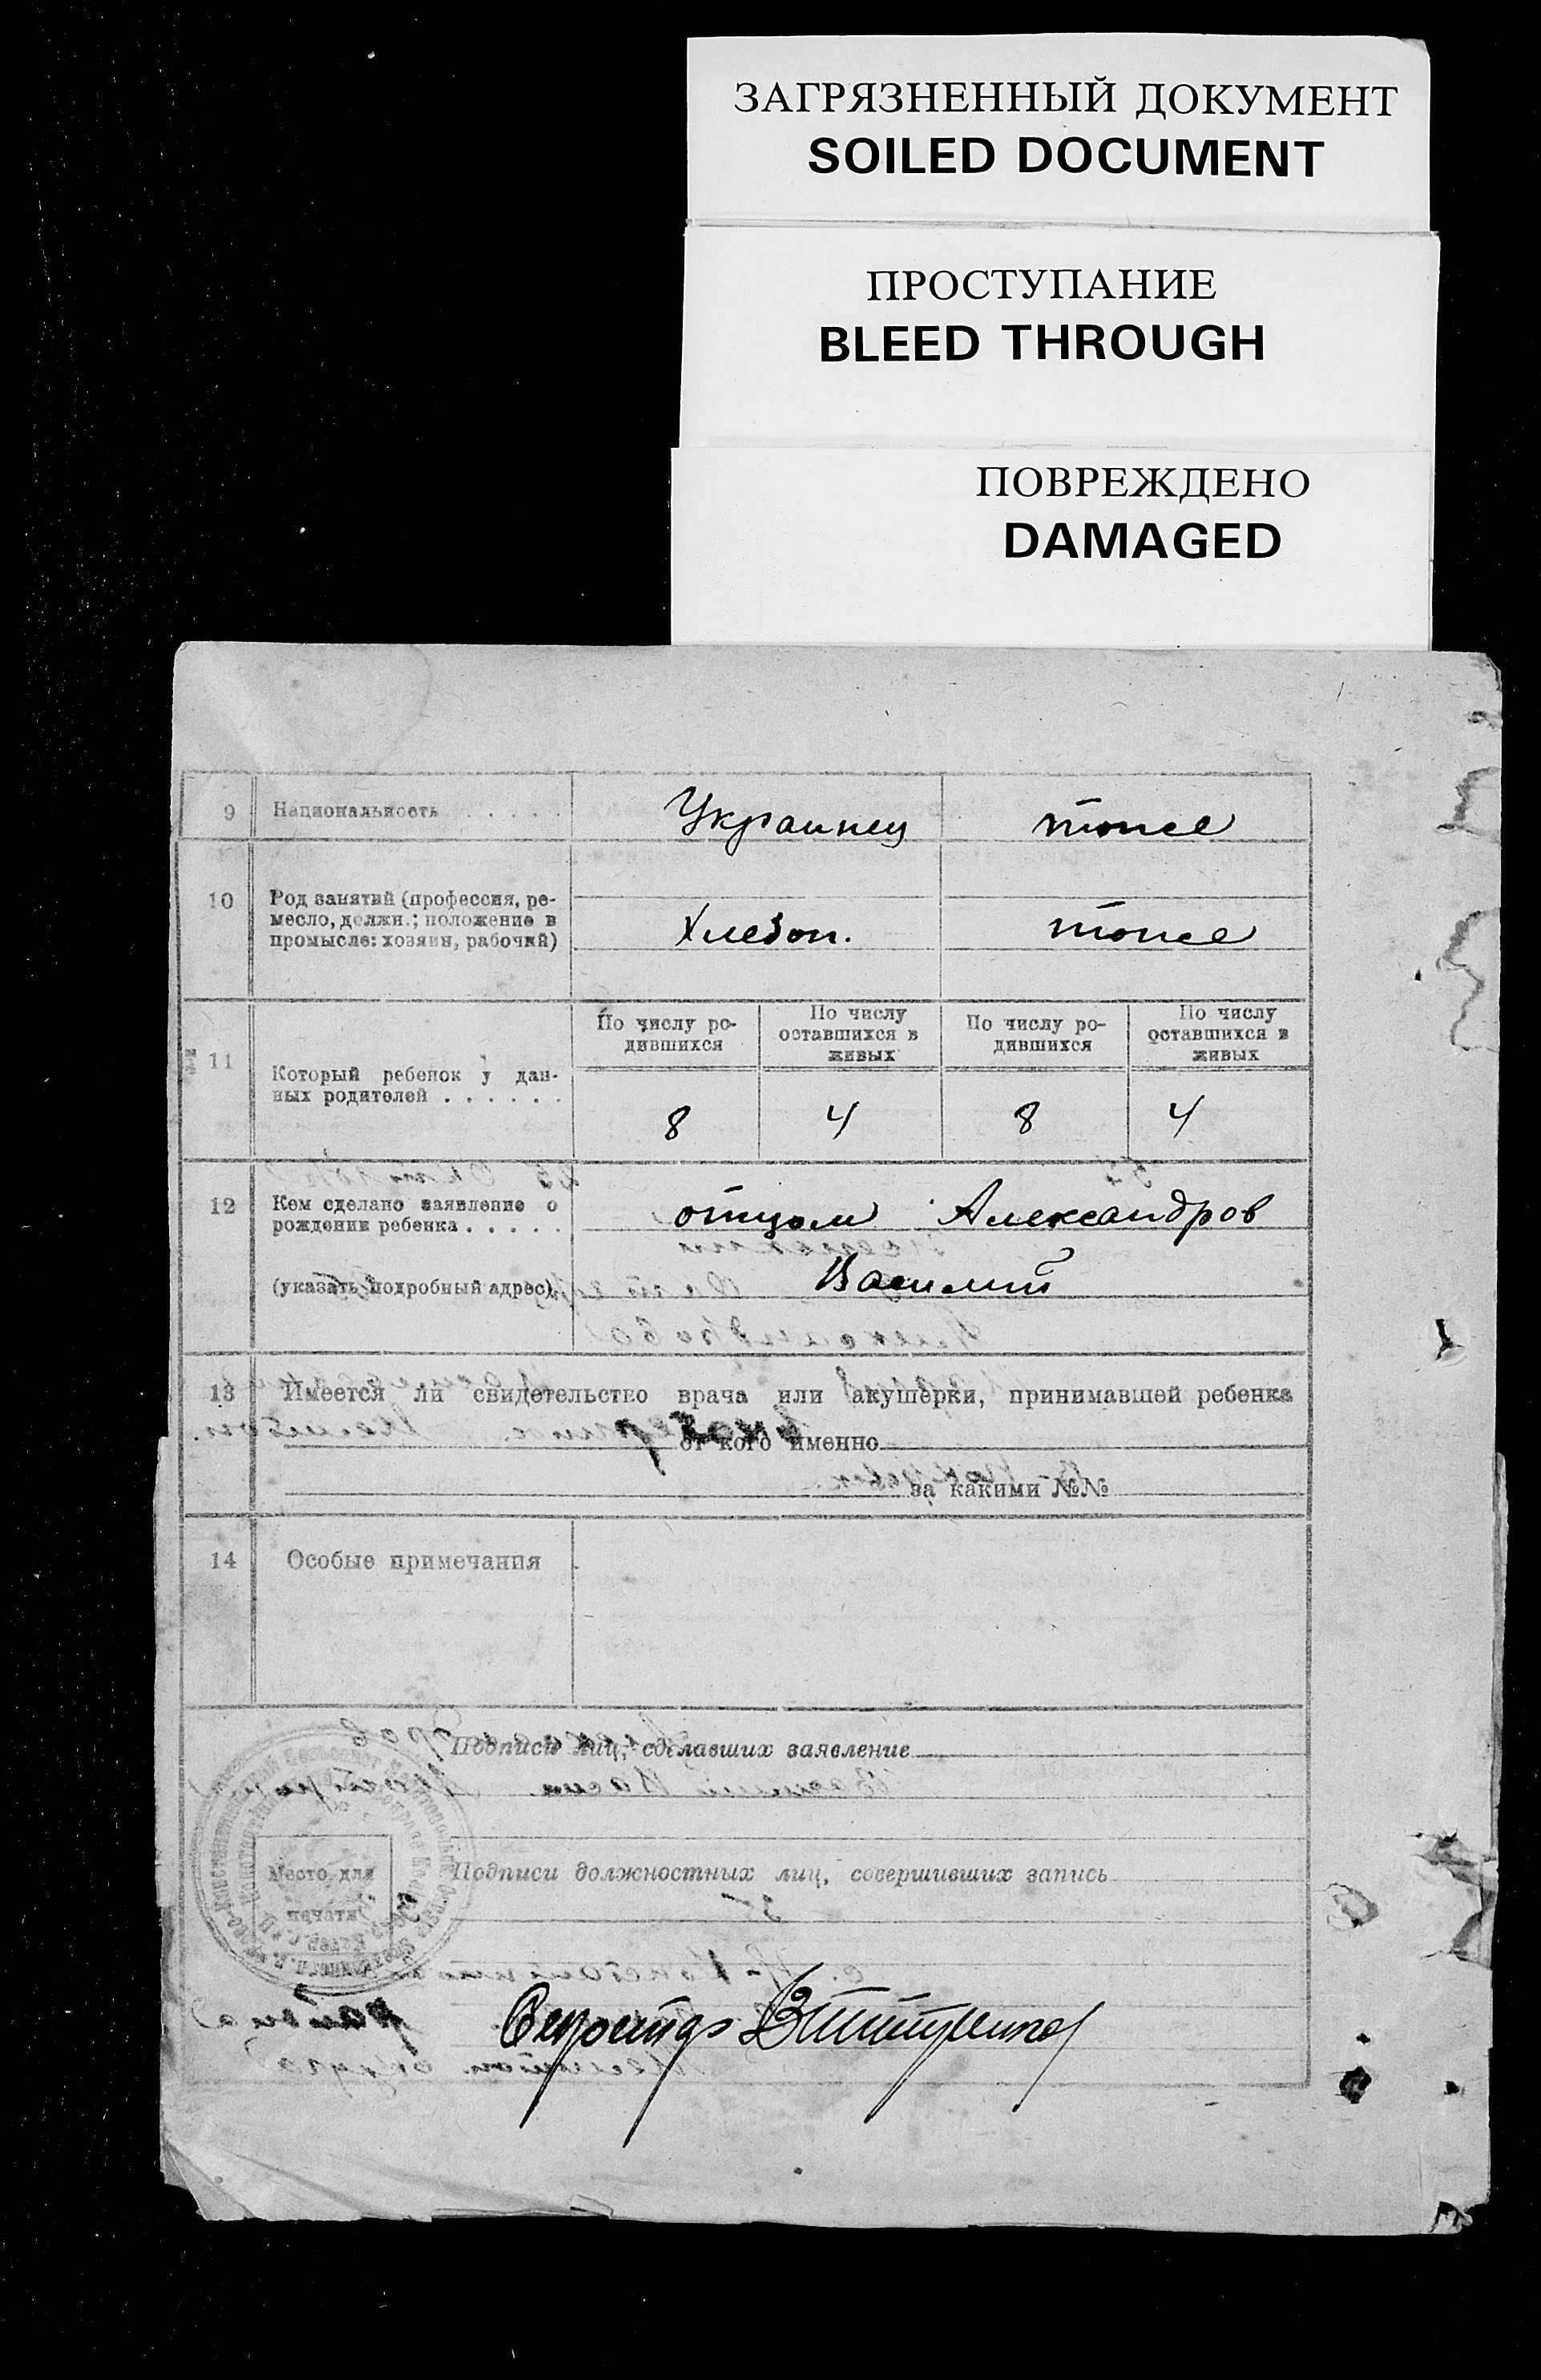 ЗАГРЯЗНЕННЫЙ ДОКУМЕНТ
SOILED DOCUMENT
ПРОСТУПАНИЕ
BLEED THROUGH
ПОВРЕЖДЕНО
DAMAGED
9 Национальность . . . . . Украинец тоже
10 Род занятий (профессия, ре-
месло, должн.; положение в
промысле: хозяин, рабочий)
Хлебоп. тоже
11 Который ребенок у дан-
ных родителей . . . . . .
По числу ро-
дившихся
По числу
оставшихся в
живых
По числу ро-
дившихся
По числу
оставшихся в
живых
8 4 8 4
12 Кем сделано заявление о
рождении ребенка . . . . .
(указать подробный адрес)
отцом Александров
Василий
13 Имеется ли свидетельство врача или акушерки, принимавшей ребенка
от кого именно
за какими №№
14 Особые примечания
Подписи лиц, сделавших заявление
Место для
печати
Подписи должностных лиц, совершивших запись